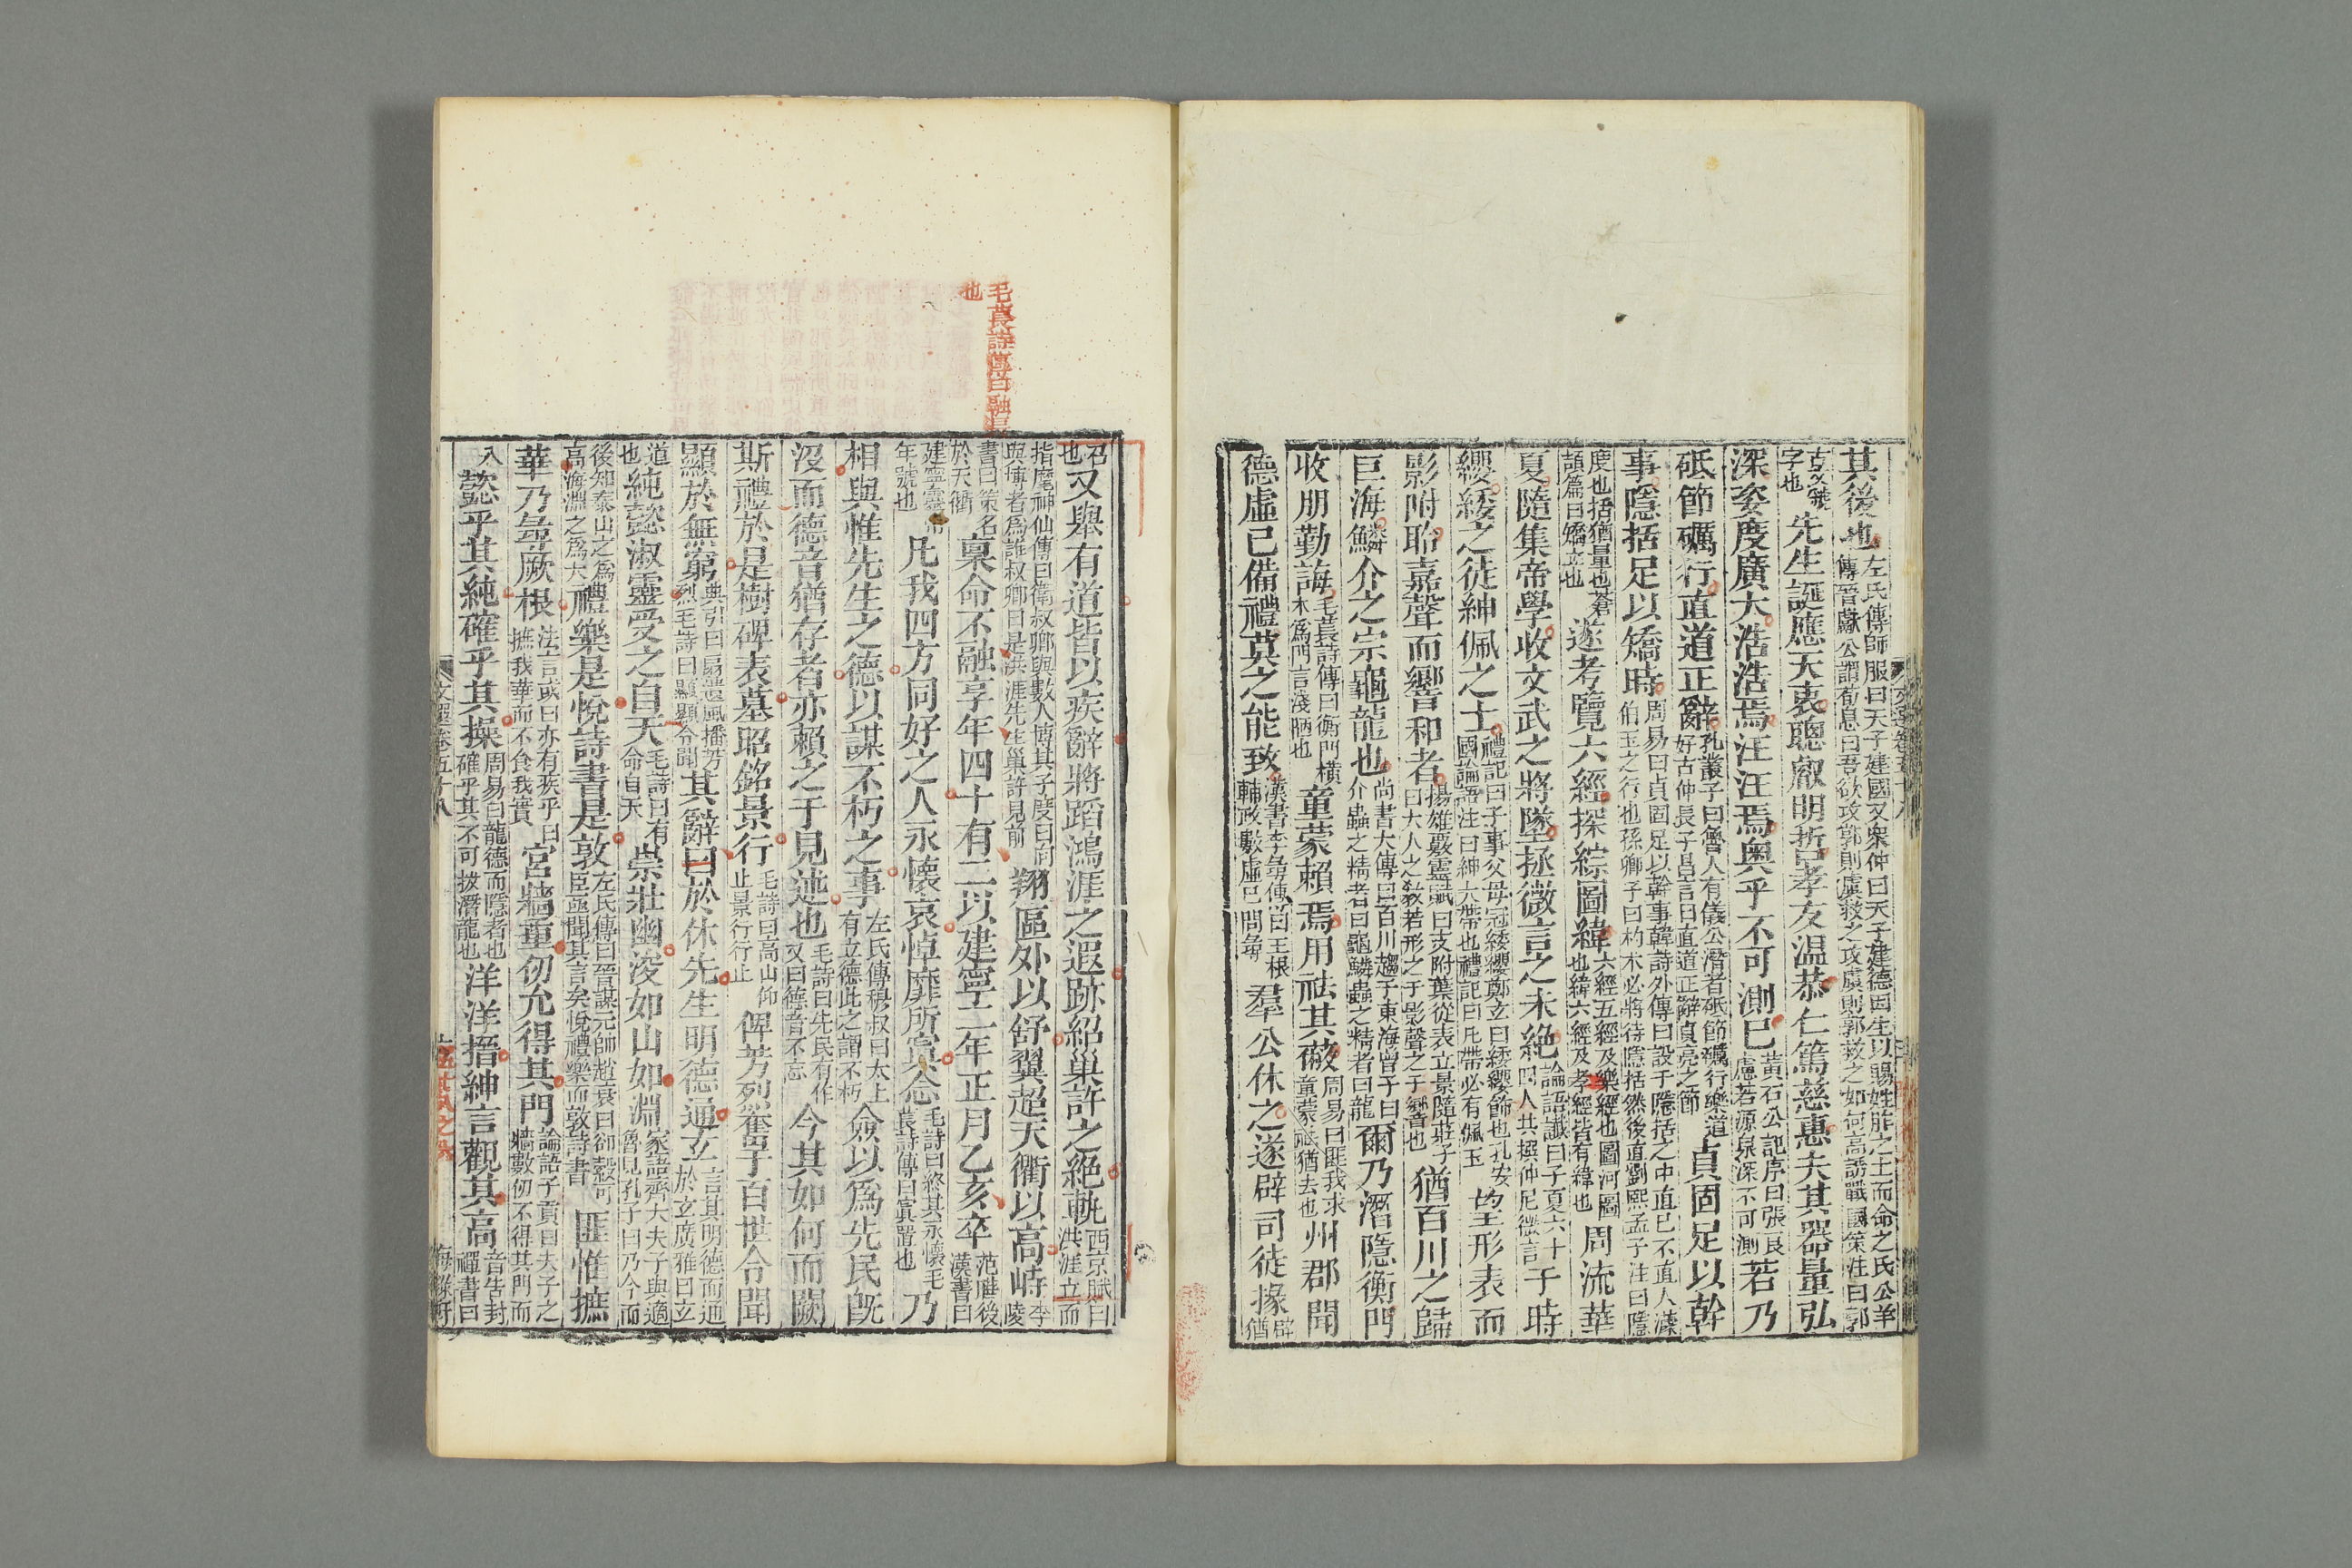 其後也左氏傳師服曰天子建國又衆仲曰天子建德因生以賜姓胙之土而命之氏公羊傳晉獻公謂荀息曰吾欲攻郭則虞救之攻虞則郭救之如何高誘戰國策注曰郭
古文虢字也先生誕應天衷聰叡明哲孝友温恭仁篤慈惠夫其器量弘
深姿度廣大浩浩焉汪汪焉奧乎不可測已黃石公記序曰張良慮若源泉深不可測若乃
砥節礪行直道正辭孔叢子曰魯人有儀公潛者砥節礪行樂道好古仲長子昌言曰直道正辭貞亮之節貞固足以幹
事隱括足以矯時周易曰貞固足以幹事韓詩外傳曰設于隱括之中直己不直人蘧伯玉之行也孫卿子曰枸木必將待隱括然後直劉熙孟子注曰隱
度也括猶量也蒼頡篇曰矯立也遂考覽六經探綜圖緯六經五經及樂經也圖河圖也緯六經及孝經皆有緯也周流華
夏隨集帝學收文武之將墜拯微言之未絕論語讖曰子夏六十四人共撰仲尼微言于時
纓緌之徒紳佩之士禮記曰子事父母冠緌纓鄭玄曰緌纓飾也孔安國論語注曰紳大帶也禮記曰凡帶必有佩玉望形表而
影附聆嘉聲而響和者揚雄覈靈賦曰支附葉從表立景隨莊子曰大人之敎若形之于影聲之于響也猶百川之歸
巨海鱗介之宗龜龍也尚書大傳曰百川趨于東海曾子曰介蟲之精者曰龜鱗蟲之精者曰龍爾乃潛隱衡門
收朋勤誨毛萇詩傳曰衡門橫木爲門言淺陋也童蒙賴焉用祛其蔽周易曰匪我求童蒙祛猶去也州郡聞
德虛己備禮莫之能致漢書李尋傳曰王根輔政數虛己問尋羣公休之遂辟司徒掾辟猶
毛萇詩傳曰融長
也
召也又舉有道皆以疾辭將蹈鴻涯之遐跡紹巢許之絕軌西京賦曰洪涯立而
指麾神仙傳曰衛叔卿與數人博其子度曰向與博者爲誰叔卿曰是洪涯先生巢許見前翔區外以舒翼超天衢以高峙李陵
書曰策名於天衢稟命不融享年四十有二以建寧二年正月乙亥卒范曄後漢書曰
建寧靈帝年號也凡我四方同好之人永懷哀悼靡所寘念毛詩曰終其永懷毛萇詩傳曰寘置也乃
相與惟先生之德以謀不朽之事左氏傳穆叔曰太上有立德此之謂不朽僉以爲先民旣
沒而德音猶存者亦賴之于見述也毛詩曰先民有作又曰德音不忘今其如何而闕
斯禮於是樹碑表墓昭銘景行毛詩曰高山仰止景行行止俾芳烈奮于百世令聞
顯於無窮典引曰扇遺風播芳烈毛詩曰顯顯令聞其辭曰於休先生明德通玄言其明德而通於玄廣雅曰玄
道也純懿淑靈受之自天毛詩曰有命自天崇壯幽浚如山如淵家語齊大夫子與適魯見孔子曰乃今而
後知泰山之爲高海淵之爲大禮樂是悅詩書是敦左氏傳曰晉謀元帥趙衰曰郤縠可臣亟聞其言矣悅禮樂而敦詩書匪惟摭
華乃尋厥根法言或曰亦有疾乎曰摭我華而不食我實宮牆重仞允得其門論語子貢曰夫子之牆數仞不得其門而
入懿乎其純確乎其操周易曰龍德而隱者也確乎其不可拔潛龍也洋洋搢紳言觀其高音告封禪書曰
文選卷五十八